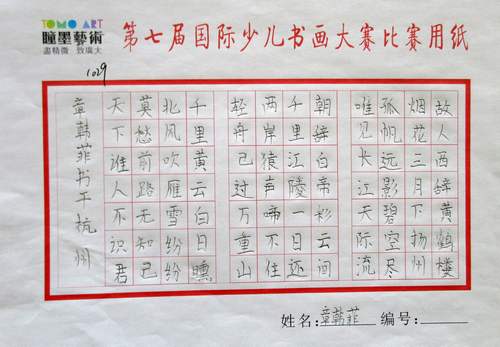 TOMO ART
瞳墨藝術
盡精微 致廣大
第七届国际少儿书画大赛比赛用纸
1029
故人西辞黄鹤楼
烟花三月下扬州
孤帆远影碧空尽
唯见长江天际流
朝辞白帝彩云间
千里江陵一日还
两岸猿声啼不住
轻舟已过万重山
千里黄云白日曛
北风吹雁雪纷纷
莫愁前路无知己
天下谁人不识君
章韩菲书于杭州
姓名:章韩菲 编号: